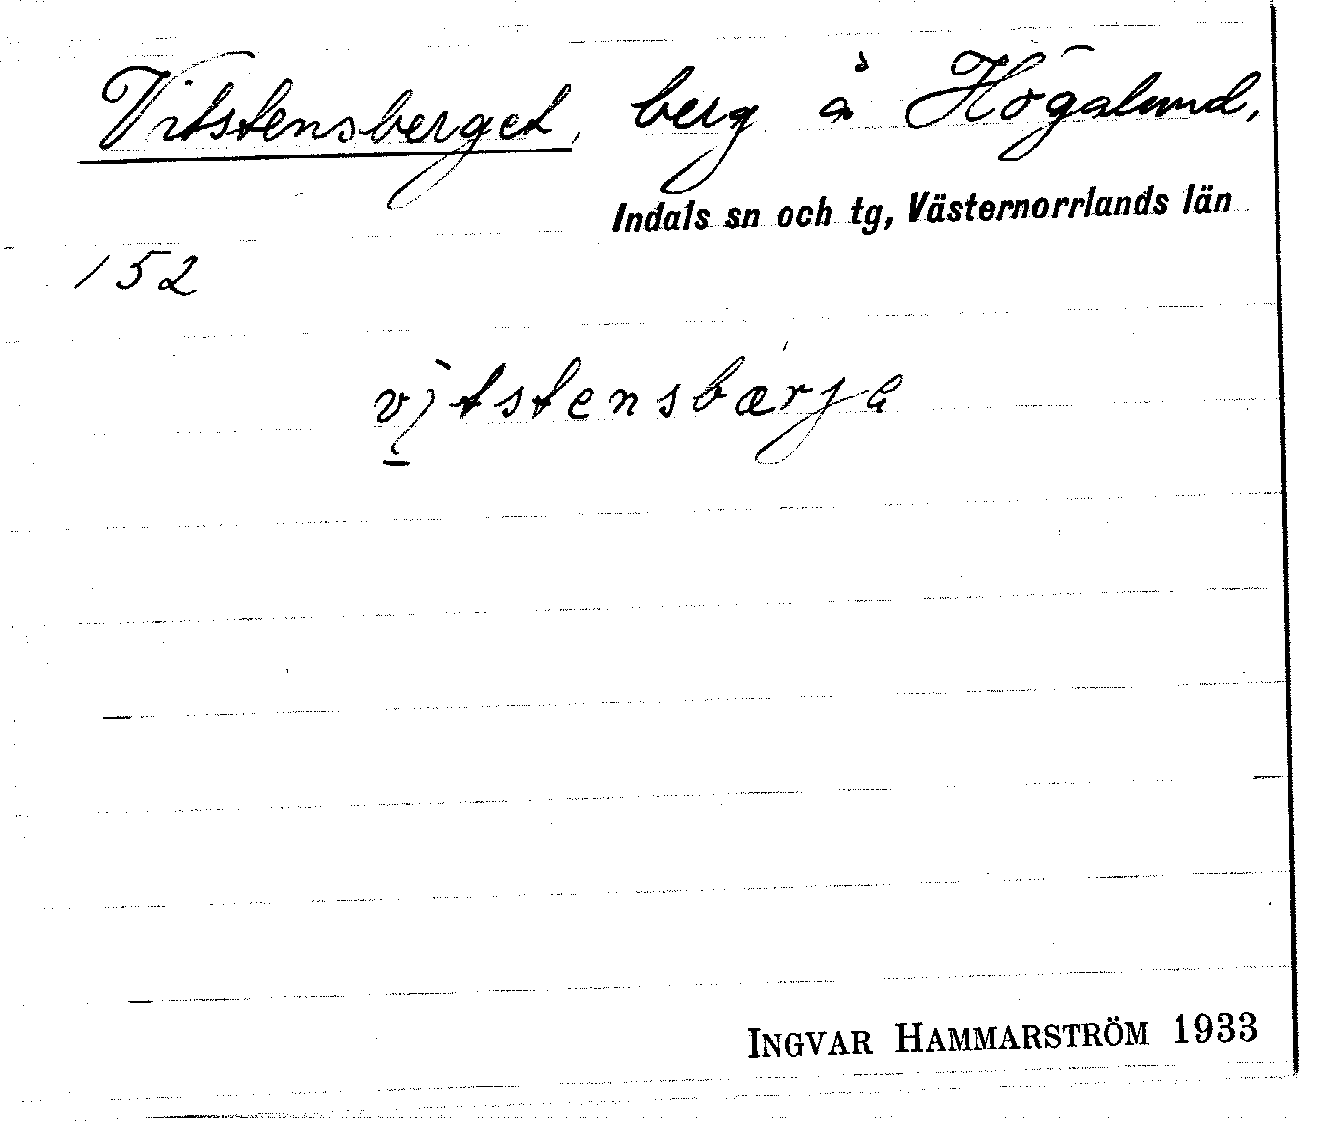 Vitstensberget, berg å Högalund,
Indals sn och tg, Västernorrlands län
152
vi̠tstensbærja
INGVAR HAMMARSTRÖM 1933